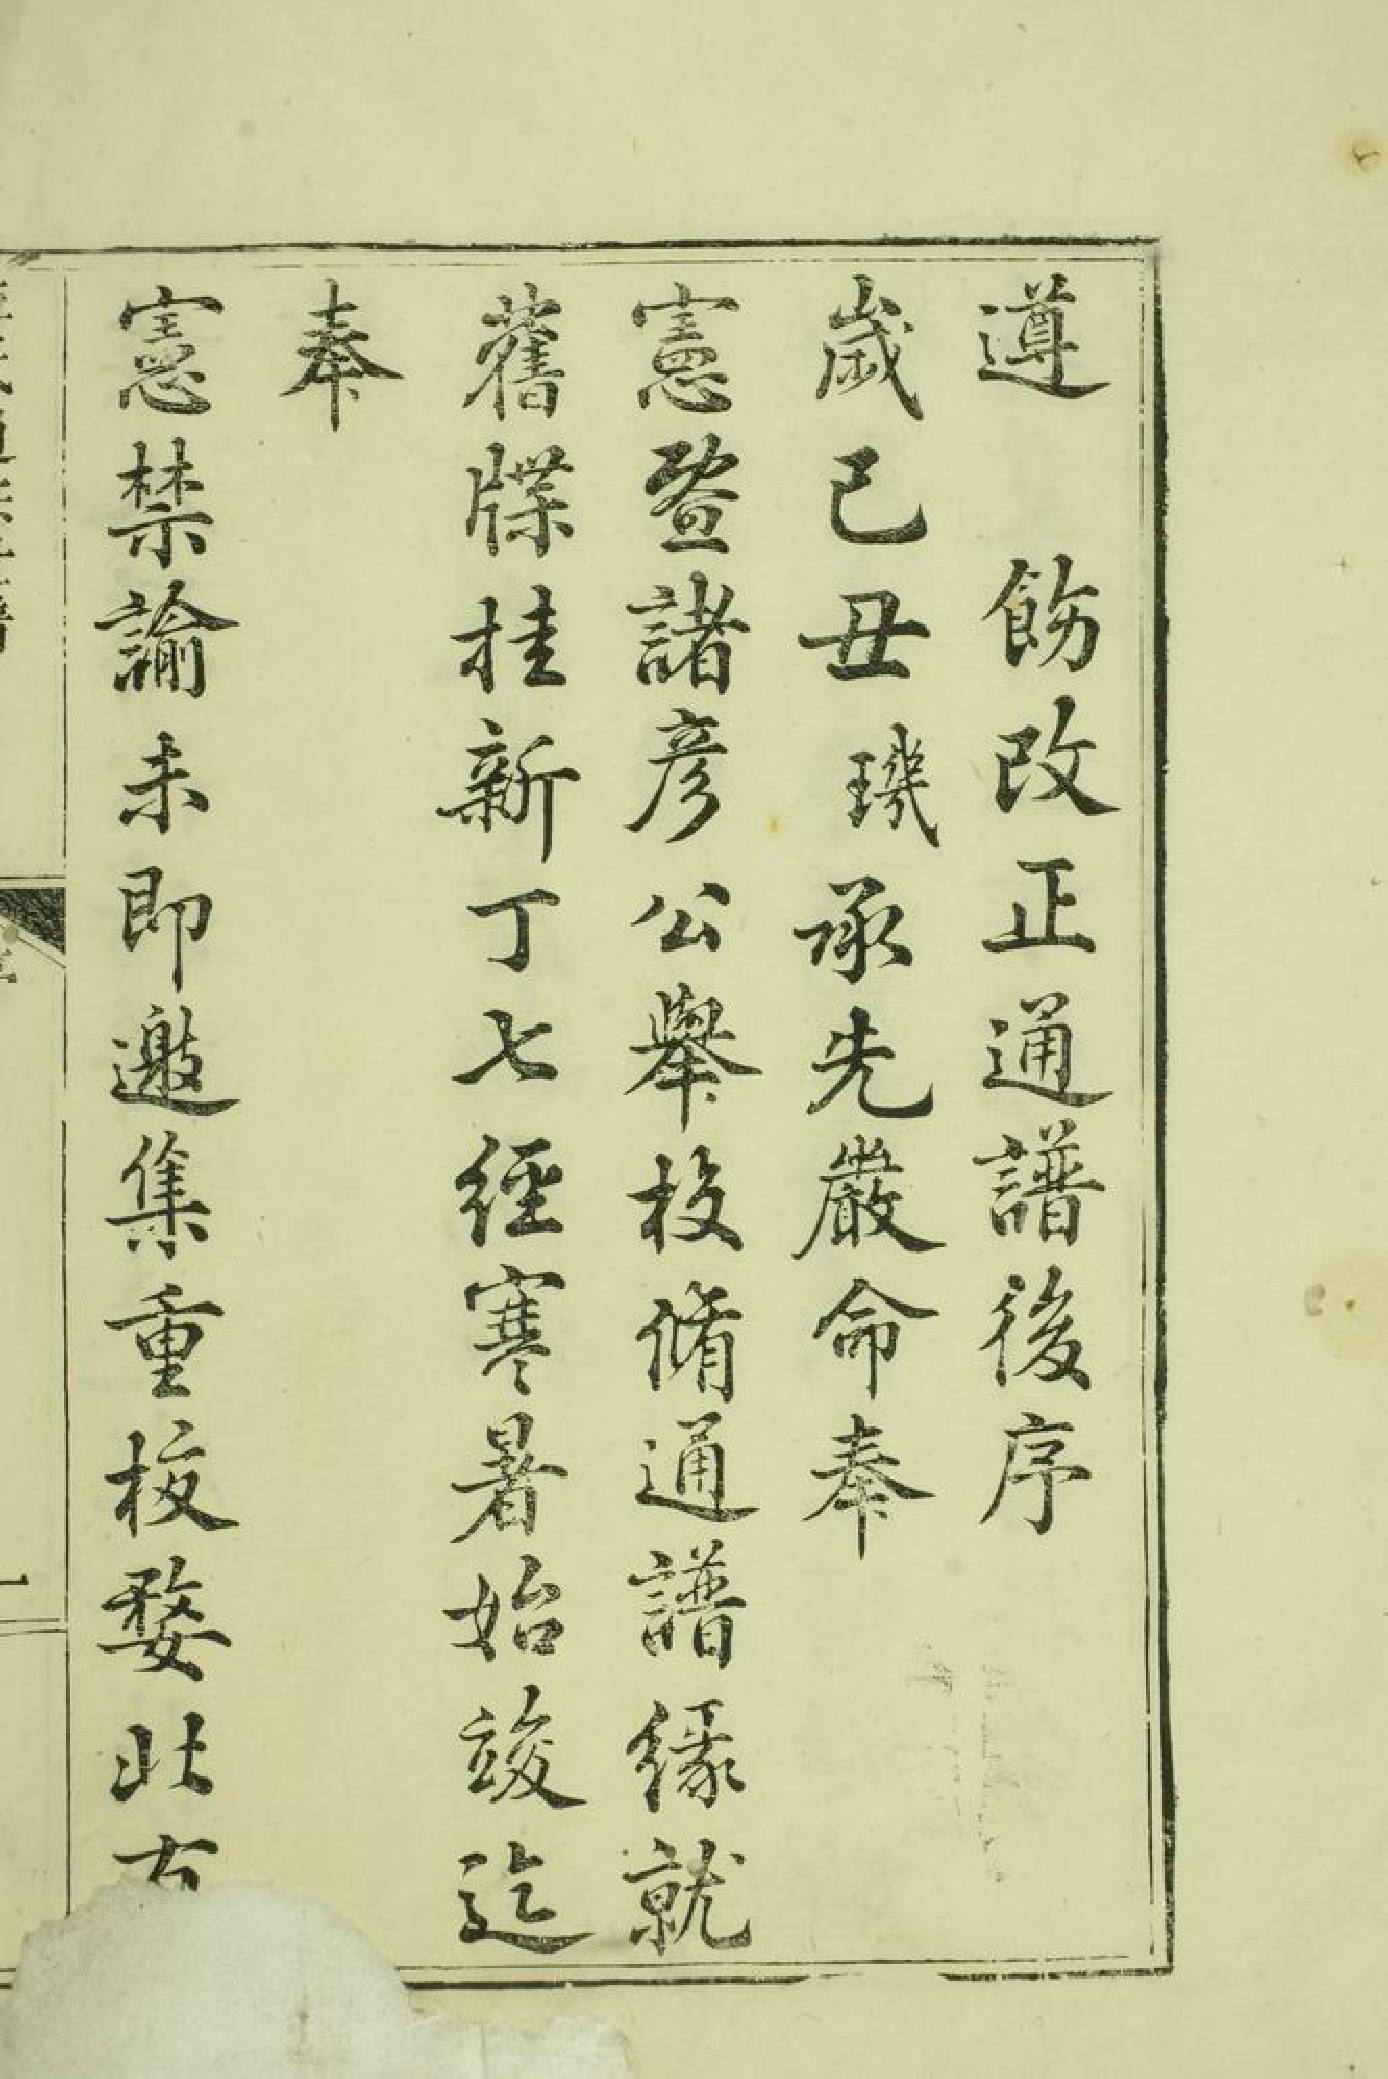 遵　飭改正通譜後序
歲己丑璣承先嚴命奉
憲暨諸彥公舉校脩通譜緣就
舊牒挂新丁七經寒暑始竣迄
奉
憲禁諭未即邀集重校婺北